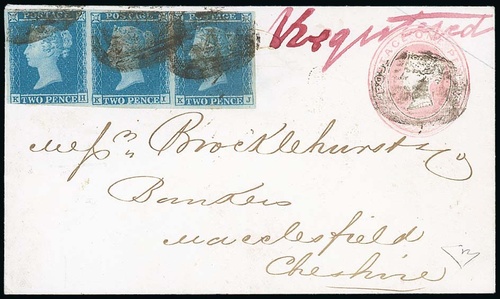 Registered
POSTAGE POSTAGE POSTAGE
K H K I K J
TWO PENCE TWO PENCE TWO PENCE
Messrs Brocklehurst & Co
Bankers
Macclesfield
Cheshire